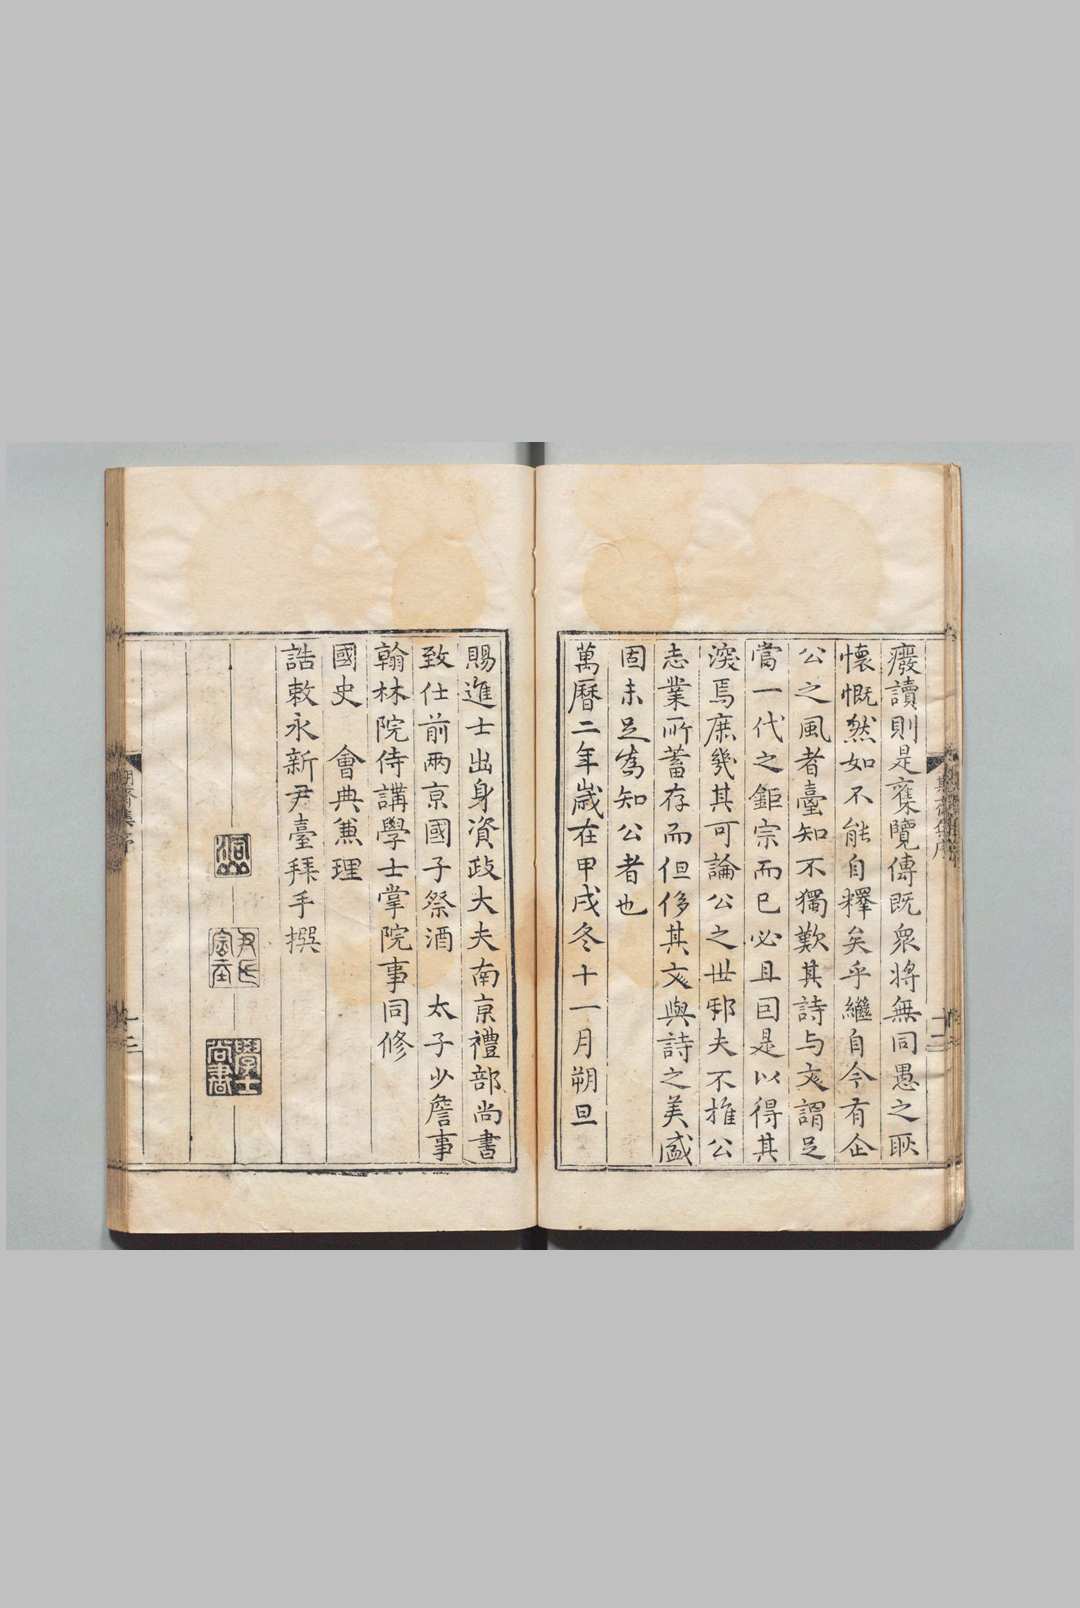 癈讀則是裒覽傳既衆將無同愚之耿
懷慨然如不能自釋矣乎繼自今有企
公之風者臺知不獨歎其詩与文謂足
當一代之鉅宗而已必且曰是以得其
深焉庶幾其可論公之世邪夫不推公
志業所蓄存而但侈其文與詩之美盛
固未足為知公者也
萬曆二年歲在甲戌冬十一月朔旦
賜進士出身資政大夫南京禮部尚書
致仕前兩京國子祭酒 太子少詹事
翰林院侍講學士掌院事同修
國史 會典兼理
誥敕永新尹臺拜手撰
尹氏
學士尚書